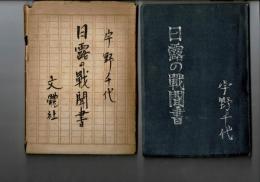 宇野千代
日露の戦聞書
文體社
日露の戦聞書
宇野千代